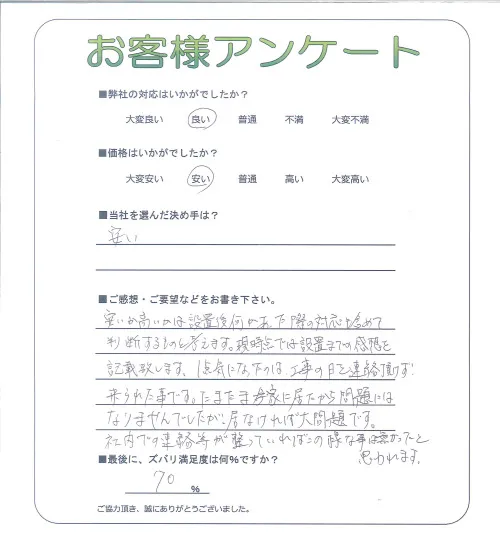 お客様アンケート
■弊社の対応はいかがでしたか？
大変良い 良い 普通 不満 大変不満
■価格はいかがでしたか？
大変安い 安い 普通 高い 大変高い
■当社を選んだ決め手は？
安い
■ご感想・ご要望などをお書き下さい。
安いか高いかは設置後何かあった際の対応も含めて
判断するものと考えます。現時点では設置までの感想を
記載致します。1点気になったのは、工事の日を連絡頂けず
来られた事です。たまたま家に居たから問題には
なりませんでしたが、居なければ大問題です。
社内での連絡等が整っていればこの様な事は無かったと
思われます。
■最後に、ズバリ満足度は何%ですか？
70 %
ご協力頂き、誠にありがとうございました。